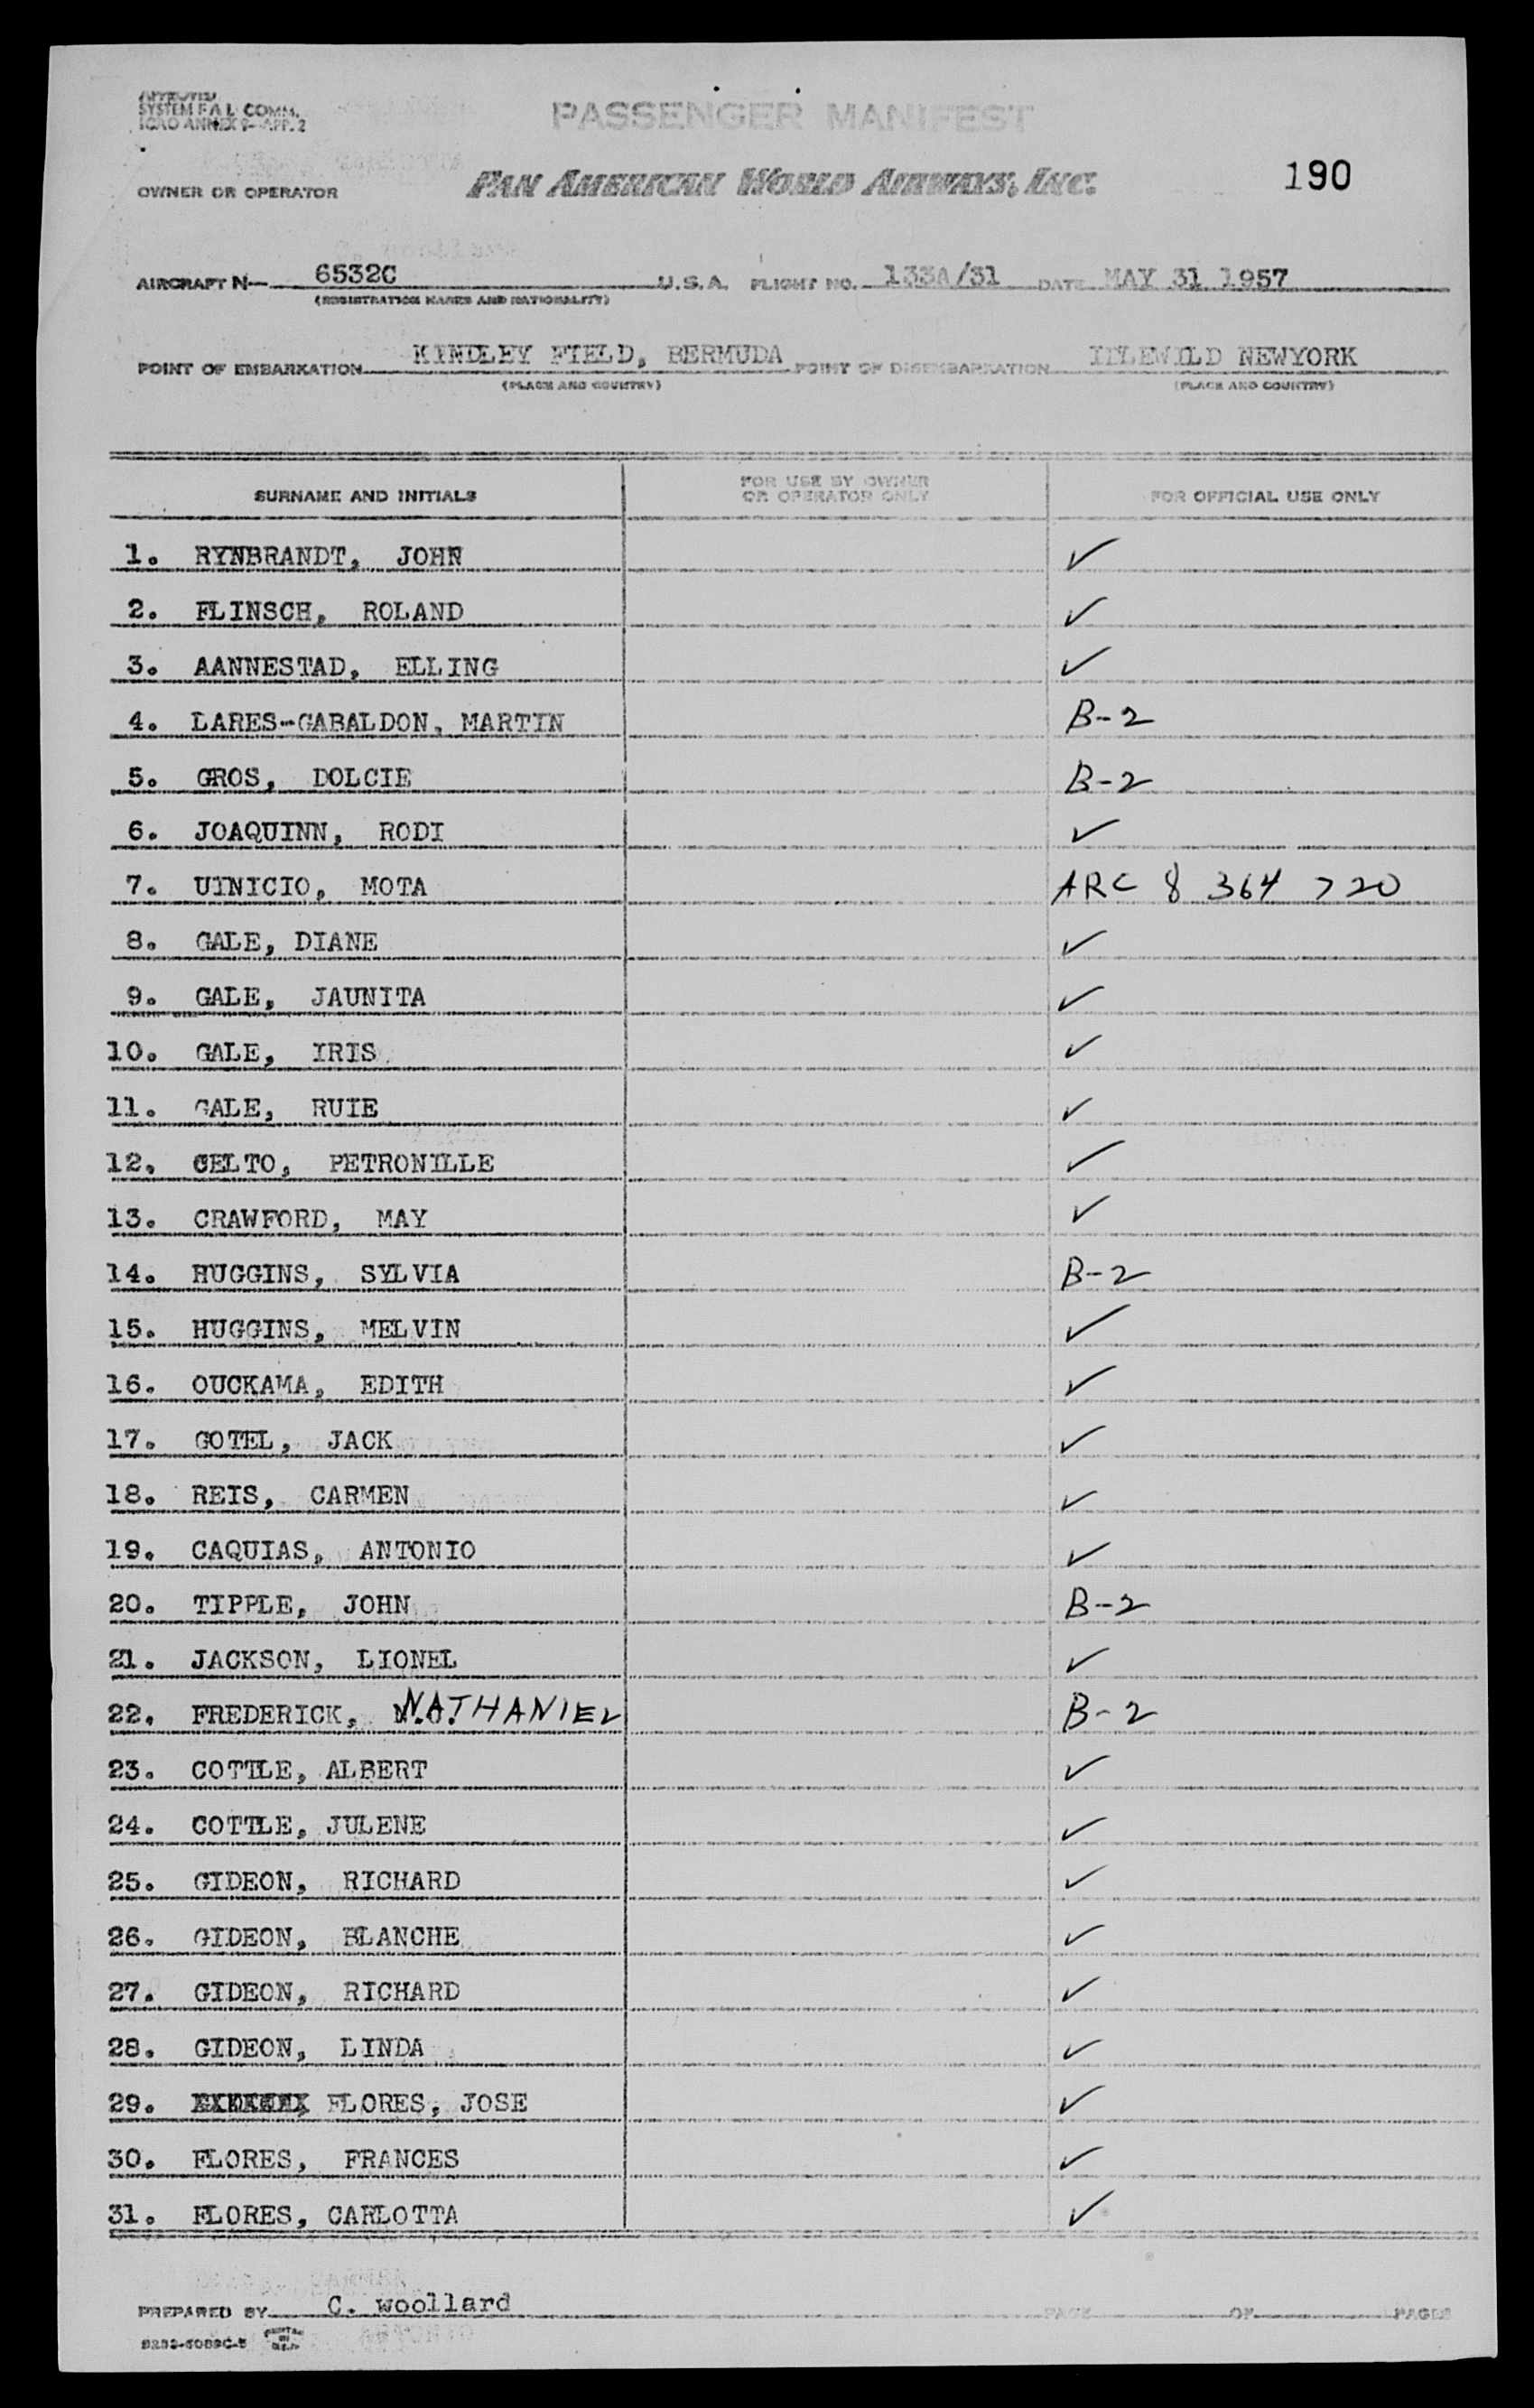 APPROVED
SYSTEM F A L COMM.
ICAO ANNEX 9-APP. 2
PASSENGER MANIFEST
OWNER OR OPERATOR PAN AMERICAN WORLD AIRWAYS, INC. 190
AIRCRAFT N- 6532C U.S.A. FLIGHT NO. 133A/31 DATE MAY 31 1957
(REGISTRATION MARKS AND NATIONALITY)
POINT OF EMBARKATION KINDLEY FIELD, BERMUDA POINT OF DISEMBARKATION IDLEWILD NEWYORK
(PLACE AND COUNTRY) (PLACE AND COUNTRY)
SURNAME AND INITIALS FOR USE BY OWNER OR OPERATOR ONLY FOR OFFICIAL USE ONLY
1. RYNBRANDT, JOHN ✓
2. FLINSCH, ROLAND ✓
3. AANNESTAD, ELLING ✓
4. LARES-GABALDON, MARTIN B-2
5. GROS, DOLCIE B-2
6. JOAQUINN, RODI ✓
7. UINICIO, MOTA ARC 8 364 720
8. GALE, DIANE ✓
9. GALE, JAUNITA ✓
10. GALE, IRIS ✓
11. GALE, RUIE ✓
12. CELTO, PETRONILLE ✓
13. CRAWFORD, MAY ✓
14. HUGGINS, SYLVIA B-2
15. HUGGINS, MELVIN ✓
16. OUCKAMA, EDITH ✓
17. GOTEL, JACK ✓
18. REIS, CARMEN ✓
19. CAQUIAS, ANTONIO ✓
20. TIPPLE, JOHN B-2
21. JACKSON, LIONEL ✓
22. FREDERICK, NATHANIEL B-2
23. COTTLE, ALBERT ✓
24. COTTLE, JULENE ✓
25. GIDEON, RICHARD ✓
26. GIDEON, BLANCHE ✓
27. GIDEON, RICHARD ✓
28. GIDEON, LINDA ✓
29. FLORES, JOSE ✓
30. FLORES, FRANCES ✓
31. FLORES, CARLOTTA ✓
PREPARED BY C. woollard PAGE OF PAGES
PRINTED IN U.S.A.